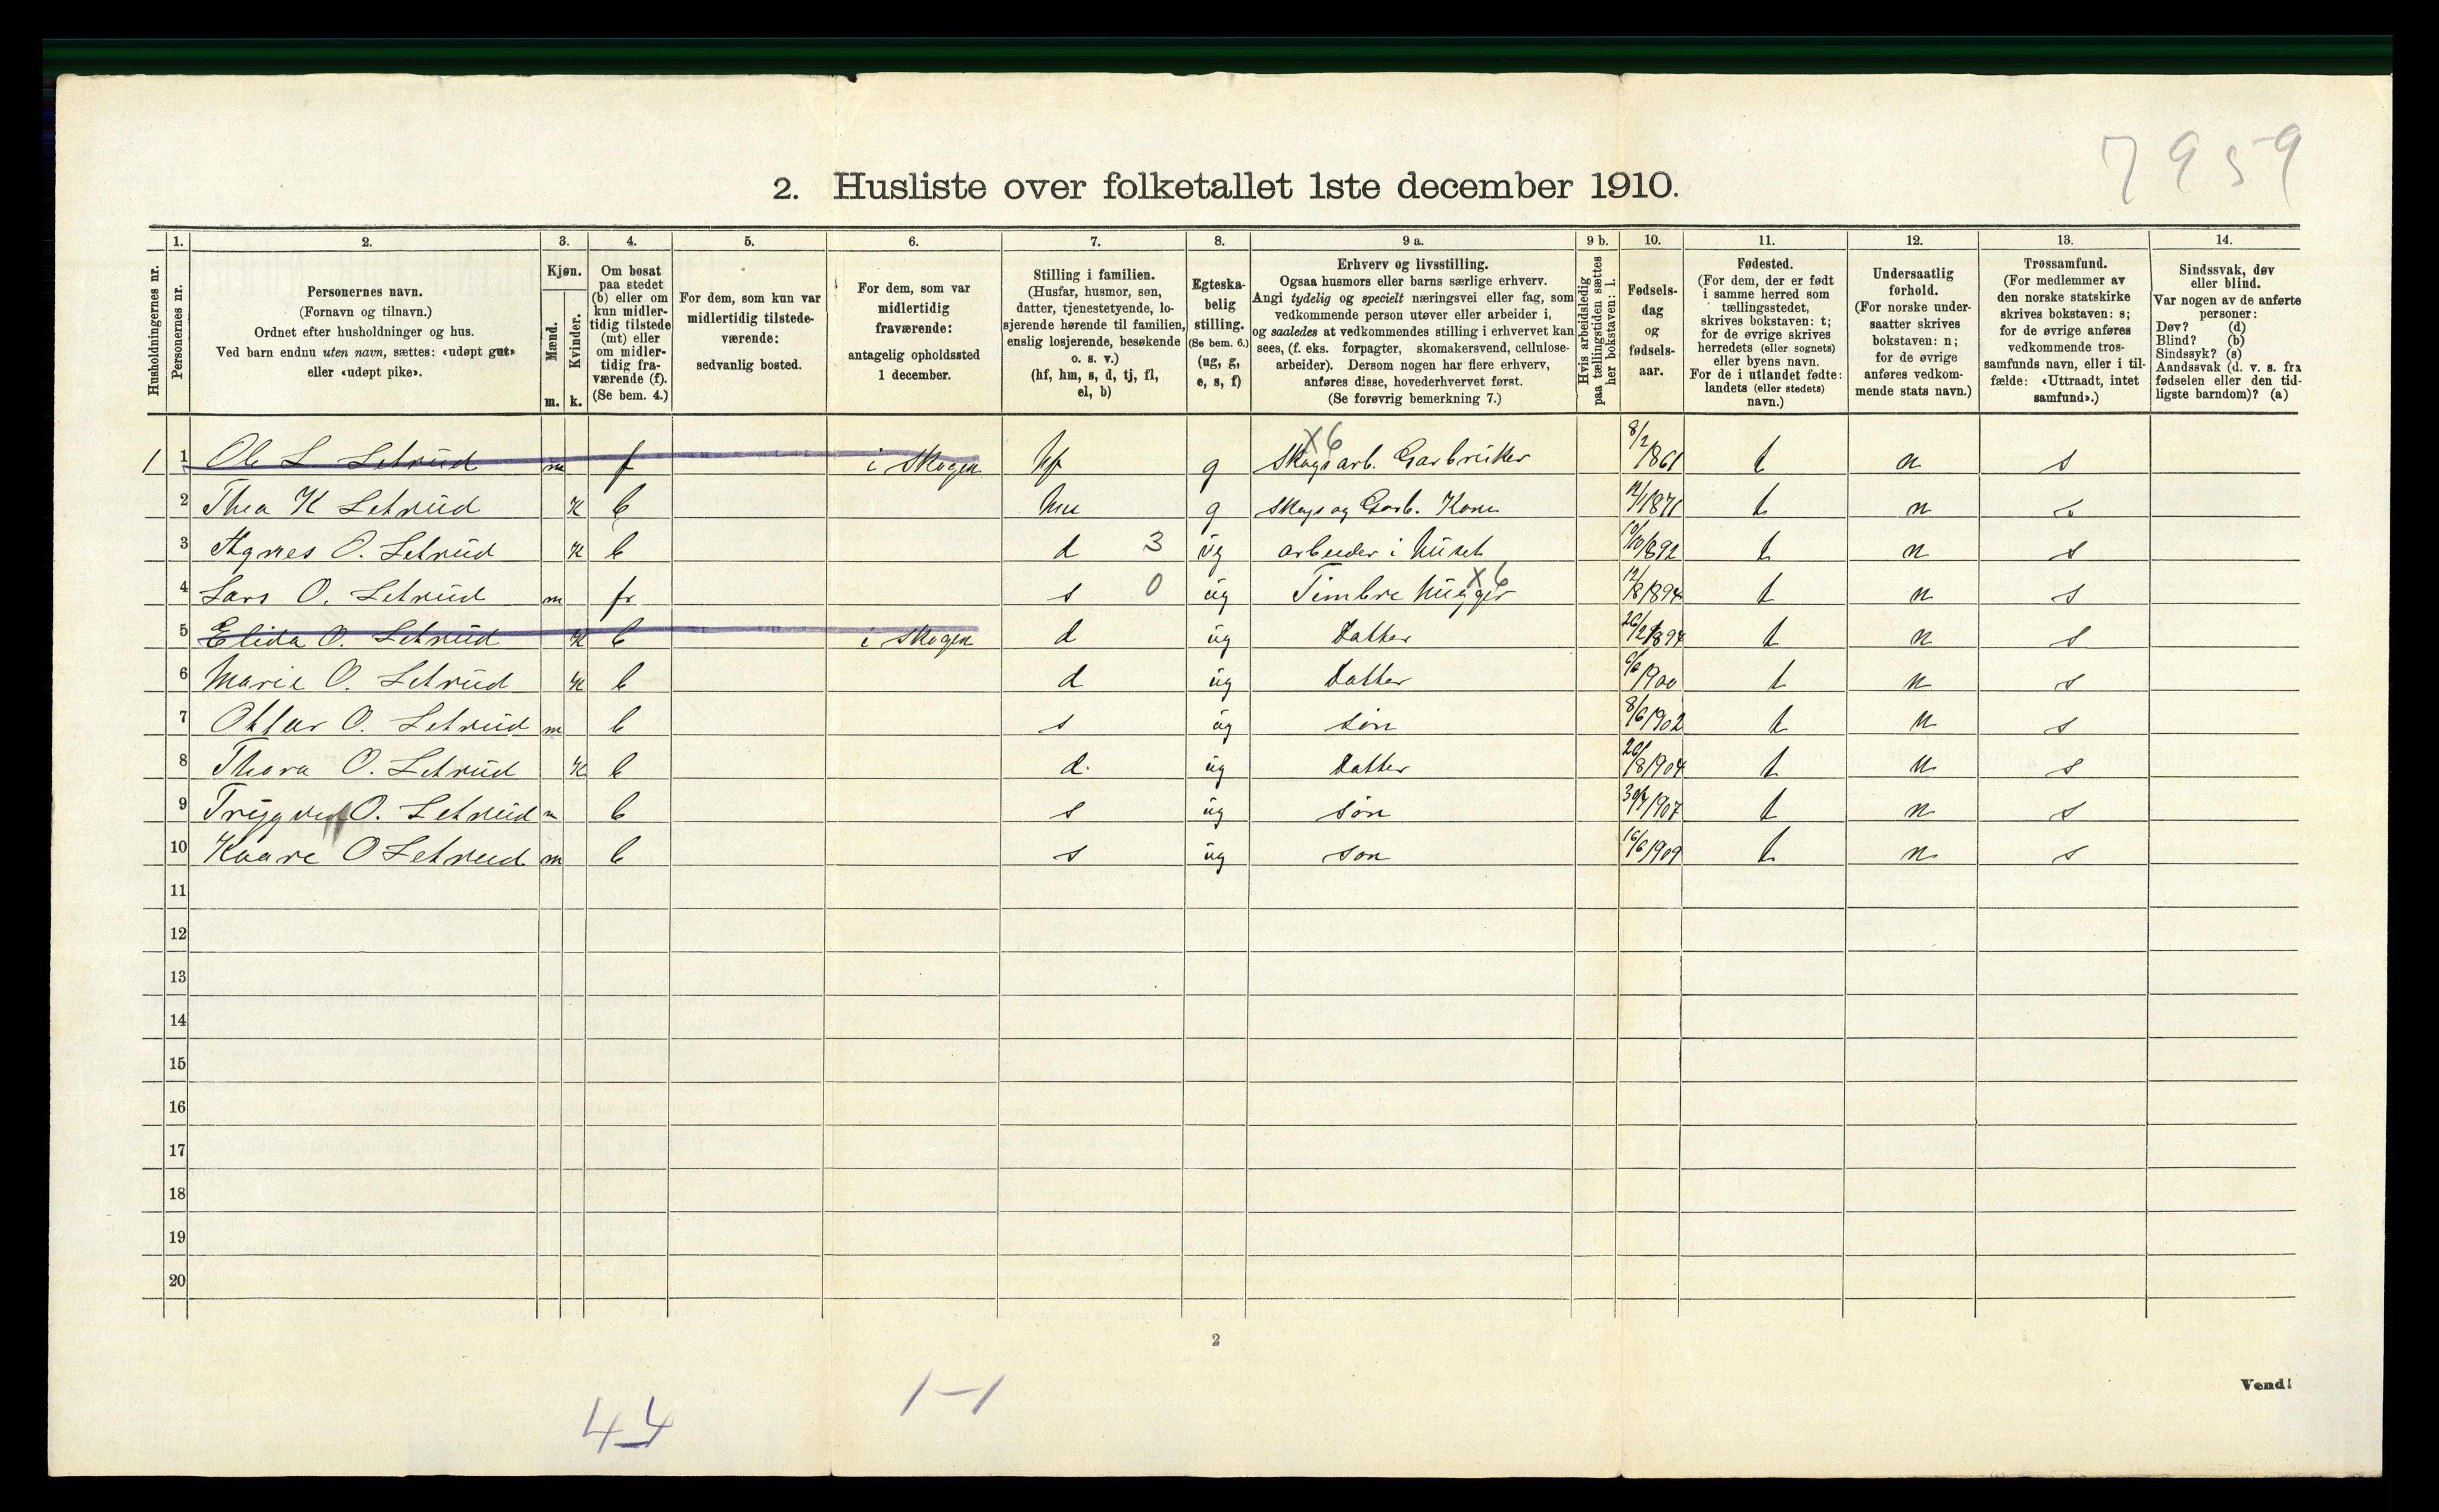 7959
2. Husliste over folketallet 1ste december 1910.
1. 2. 3. 4. 5. 6. 7. 8. 9 a. 9 b. 10. 11. 12. 13. 14.
Husholdningernes nr.
Personernes nr.
Personernes navn.
(Fornavn og tilnavn.)
Ordnet efter husholdninger og hus.
Ved barn endnu uten navn, sættes: «udøpt gut»
eller «udøpt pike».
Kjøn.
Mænd.
Kvinder.
m. k.
Om bosat
paa stedet
(b) eller om
kun midler-
tidig tilstede
(mt) eller
om midler-
tidig fra-
værende (f).
(Se bem. 4.)
For dem, som kun var
midlertidig tilstede-
værende:
sedvanlig bosted.
For dem, som var
midlertidig
fraværende:
antagelig opholdssted
1 december.
Stilling i familien.
(Husfar, husmor, søn,
datter, tjenestetyende, lo-
sjerende hørende til familien,
enslig losjerende, besøkende
o. s. v.)
(hf, hm, s, d, tj, fl,
el, b)
Egteska-
belig
stilling.
(Se bem. 6.)
(ug, g,
e, s, f)
Erhverv og livsstilling.
Ogsaa husmors eller barns særlige erhverv.
Angi tydelig og specielt næringsvei eller fag, som
vedkommende person utøver eller arbeider i,
og saaledes at vedkommendes stilling i erhvervet kan
sees, (f. eks. forpagter, skomakersvend, cellulose-
arbeider). Dersom nogen har flere erhverv,
anføres disse, hovederhvervet først.
(Se forøvrig bemerkning 7.)
Hvis arbeidsledig
paa tællingstiden sættes
her bokstaven: l.
Fødsels-
dag
og
fødsels-
aar.
Fødested.
(For dem, der er født
i samme herred som
tællingsstedet,
skrives bokstaven: t;
for de øvrige skrives
herredets (eller sognets)
eller byens navn.
For de i utlandet fødte:
landets (eller stedets)
navn.)
Undersaatlig
forhold.
(For norske under-
saatter skrives
bokstaven: n;
for de øvrige
anføres vedkom-
mende stats navn.)
Trossamfund.
(For medlemmer av
den norske statskirke
skrives bokstaven: s;
for de øvrige anføres
vedkommende tros-
samfunds navn, eller i til-
fælde: «Uttraadt, intet
samfund».)
Sindssvak, døv
eller blind.
Var nogen av de anførte
personer:
Døv? (d)
Blind? (b)
Sindssyk? (s)
Aandssvak (d. v. s. fra
fødselen eller den tid-
ligste barndom)? (a)
X6
1 1 Ole L Letrud m f i Skogen hf g Skogsarb. Garbruker 8/2 1861 t n s
2 Thea K Letrud K b hm g Skogs og Garb. Kone 1871 t n s
3 Agnes O. Letrud K b d 3 ug arbeider i huset 10/10 1892 t n s
4 Lars O. Letrud m fr s 0 ug Timbre hugger X6 12/8 1894 t n s
5 Elida O. Letrud K b i Skogen d ug Datter 26/2 t n s
6 Marie O. Letrud K b d ug Datter 6/6 1900 t n s
7 Ottar O. Letrud m b s ug søn 8/6 1902 t n s
8 Thora O. Letrud K b d. ug Datter 20/8 1904 t n s
9 Trygve O. Letrud m b s ug søn 1907 t n s
10 Kaare O Letrud m b s ug søn 16/6 1909 t n s
11
12
13
14
15
16
17
18
19
20
2
Vend!
4 4
1-1